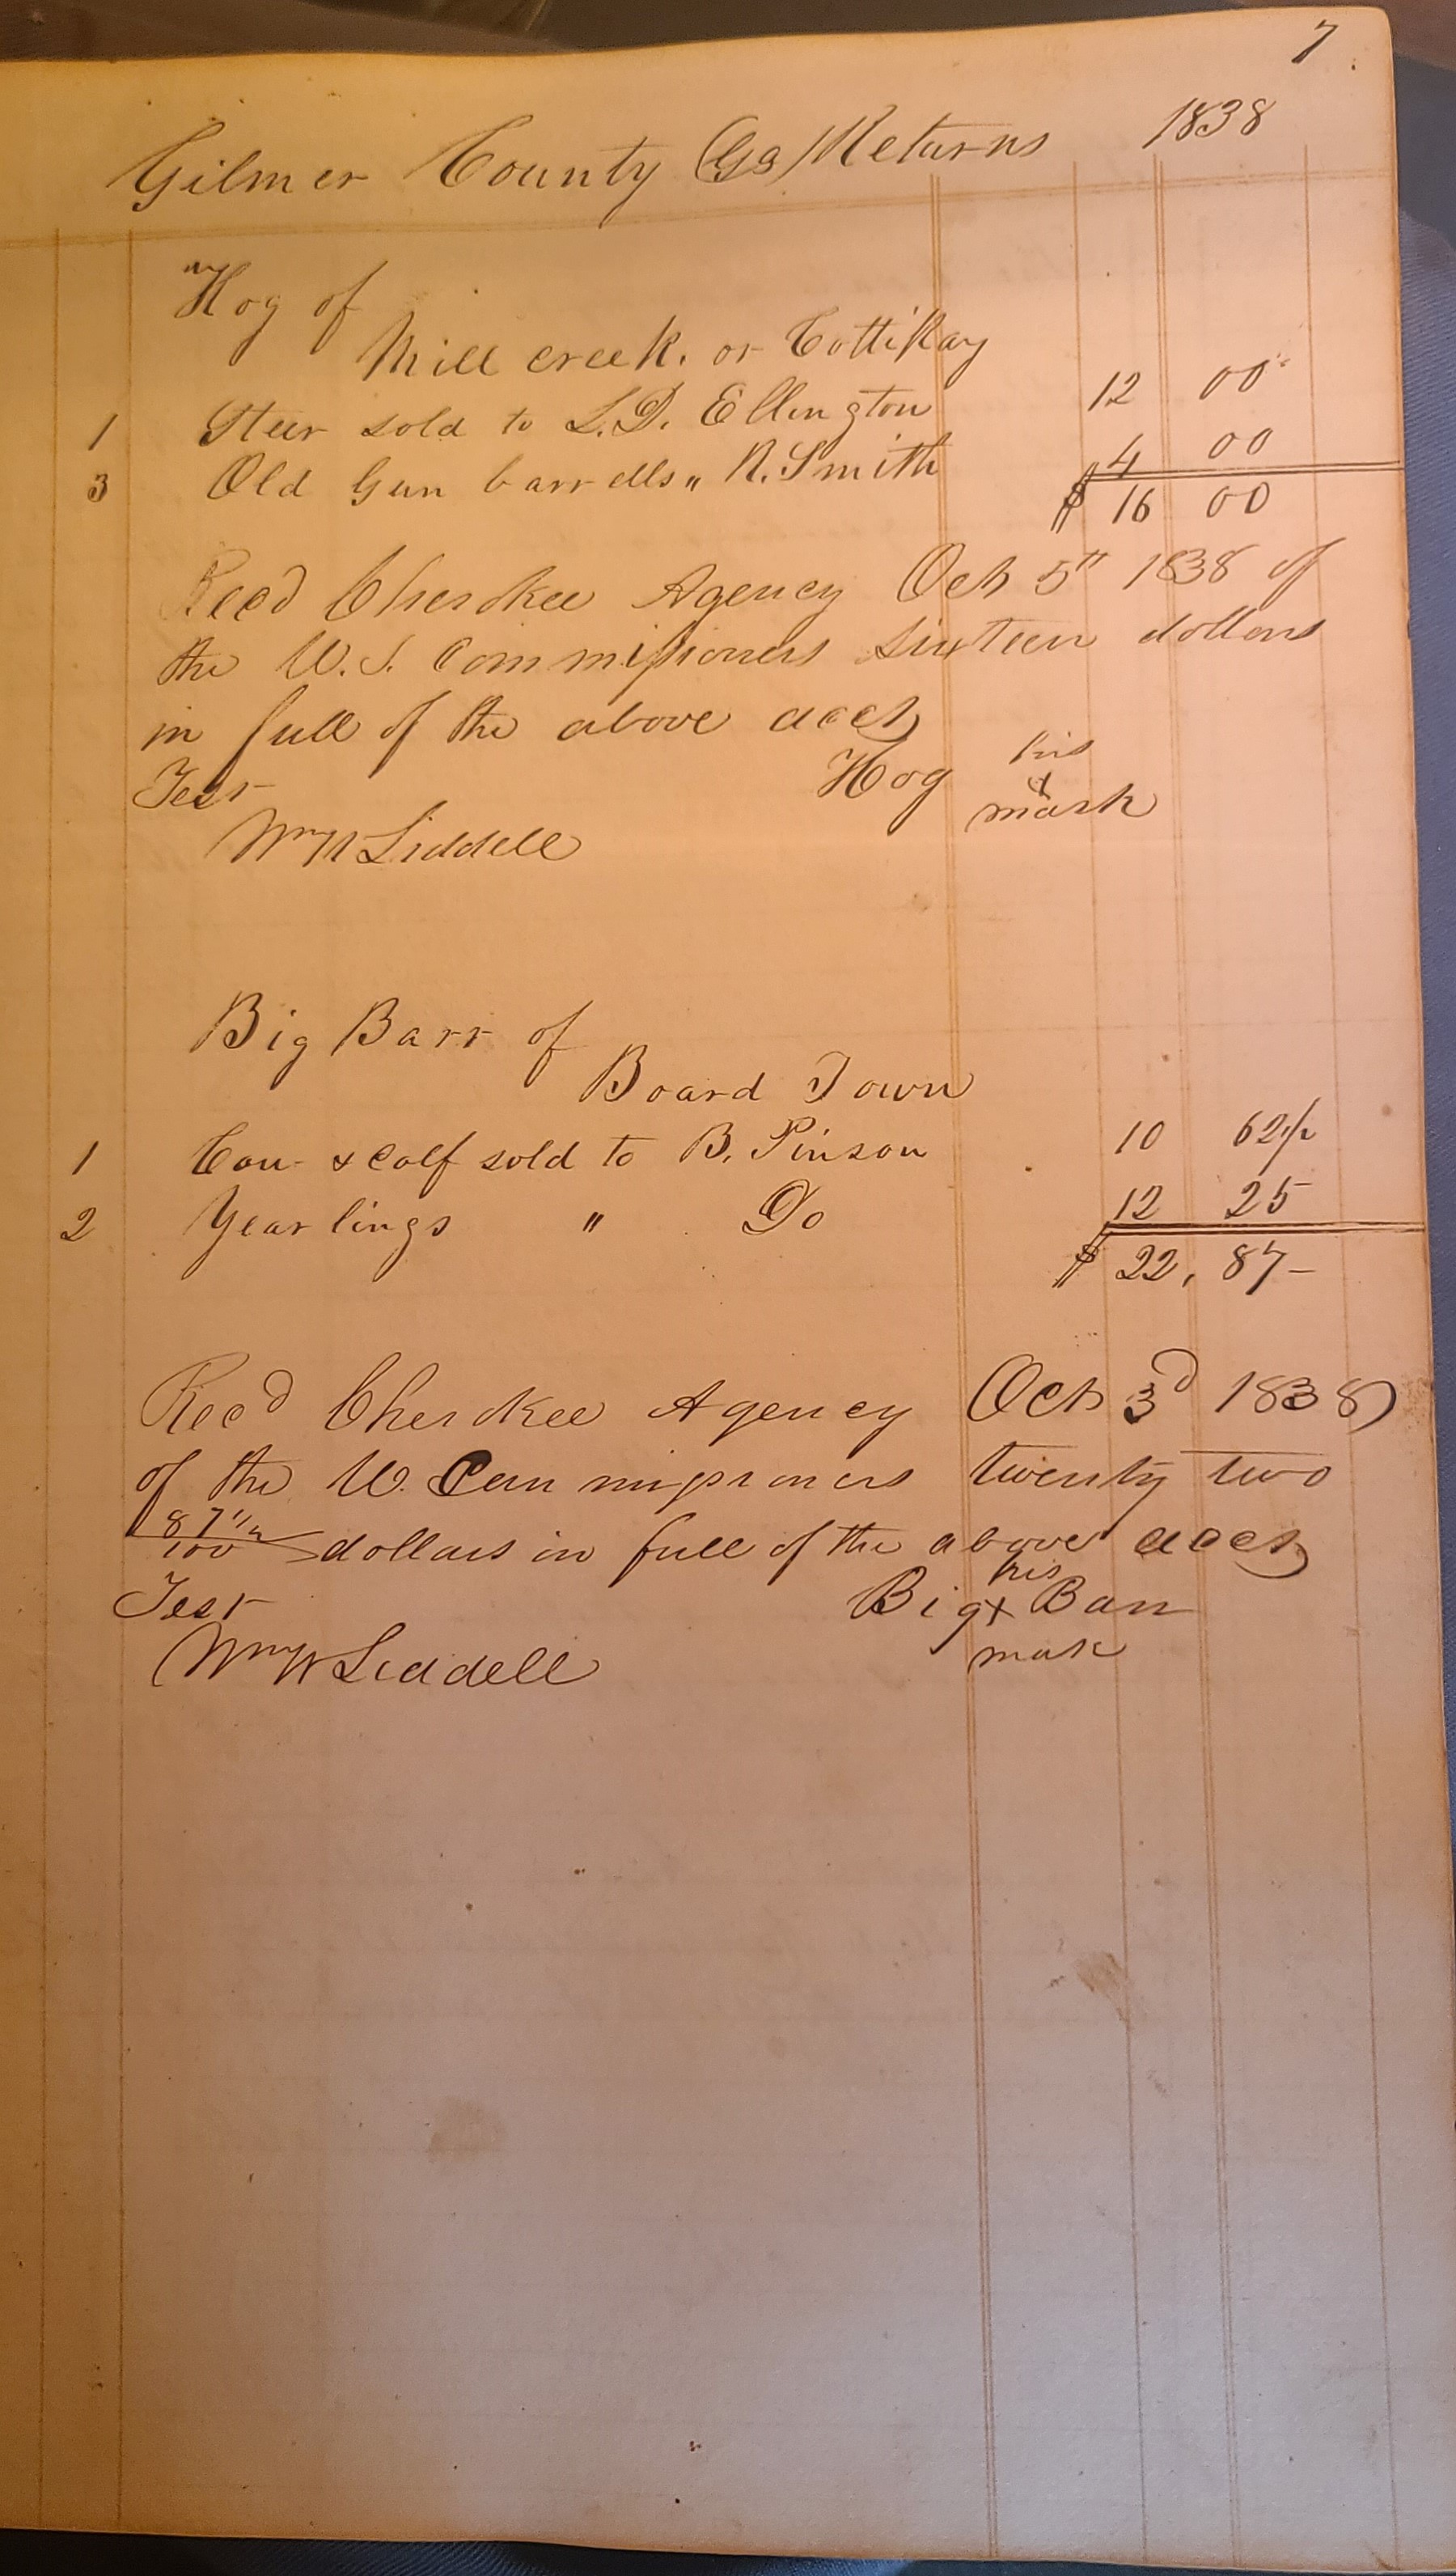 7.
Gilmer County (Ga) Returns 1838
Hog of
Mill creek. or Cottikay
1 Steer sold to L.D. Ellington 12 00
3 Old Gun barrells " R. Smith 4 00
$ 16 00
Recd Cherokee Agency Oct 5th 1838 of
the U.S. Commissioners sixteen dollars
in full of the above acct
Hog his x mark
Test
Wm N Liddell
Big Barr of
Board Town
1 Cow & Calf sold to B. Pinson 10 62 1/2
2 Yearlings " Do 12 25
$ 22, 87–
Recd Cherokee Agency Oct 3d 1838
of the U. Commissioners twenty two
87 1/2/100 dollars in full of the above acct
his
Test Big x Barr
mark
Wm N Liddell